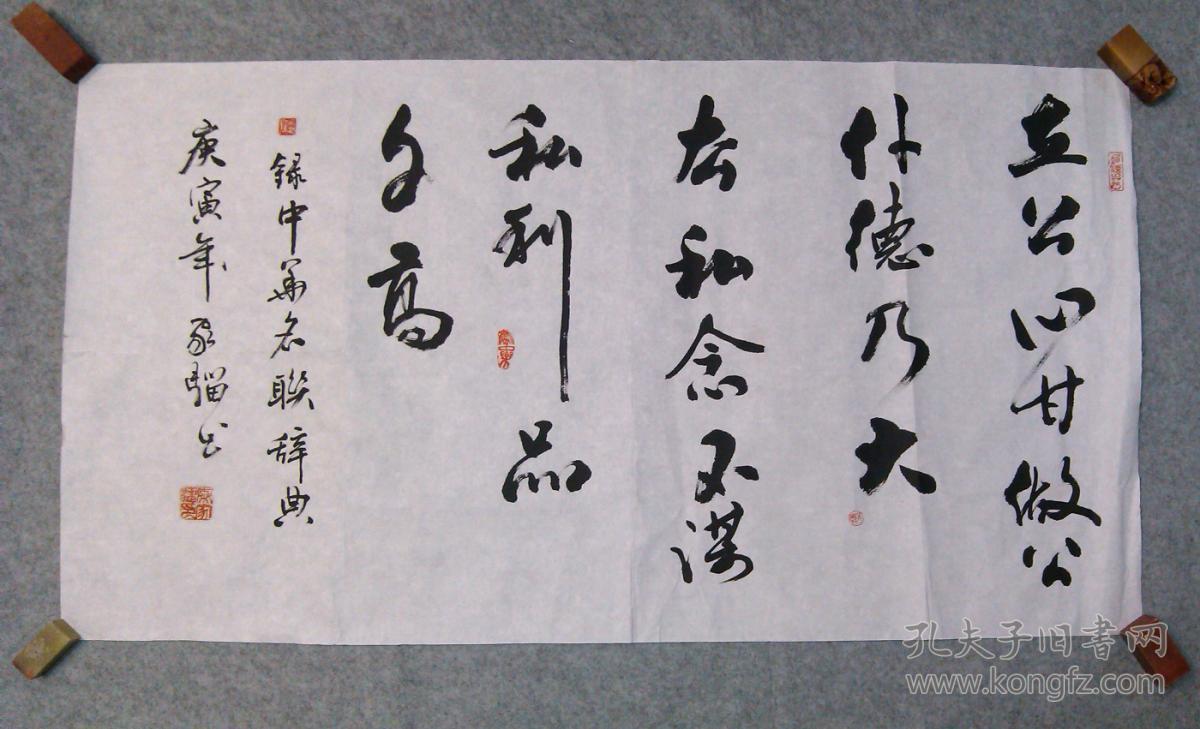 立公心甘做公
仆德乃大
去私念不谋
私利品
自高
録中華名联辞典
庚寅年家骝书
孔夫子旧书网
www.kongfz.com